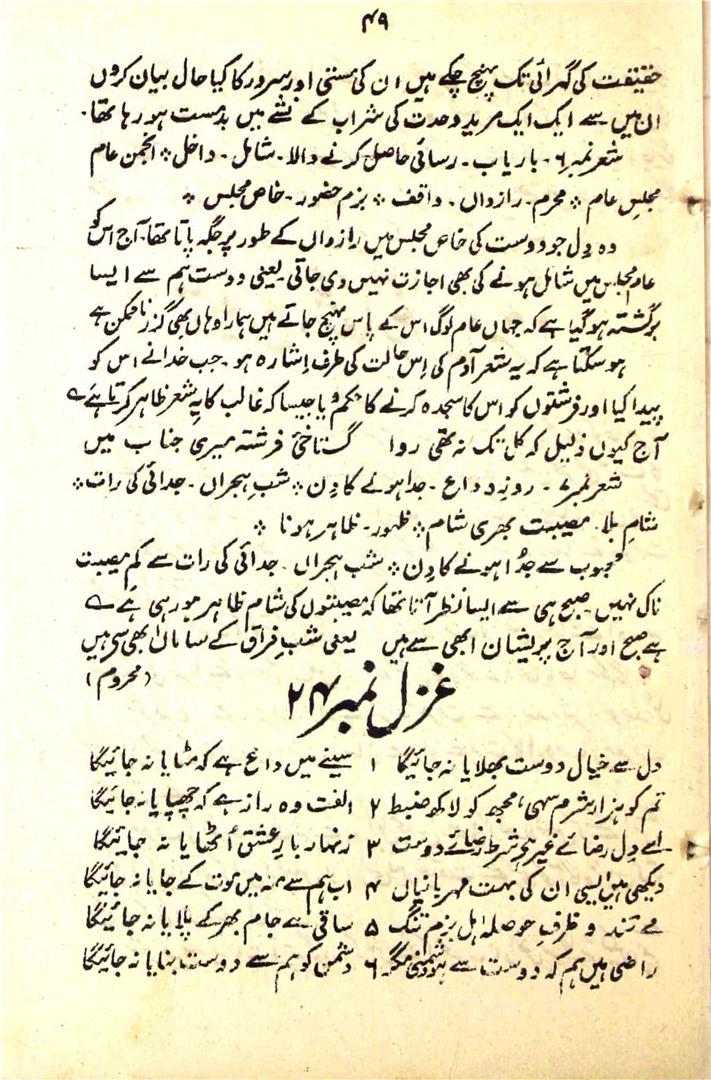 ۴۹
حقیقت کی گہرائی تک پہنچ چکے ہیں ان کی مستی اور سرور کا کیا حال بیان کروں
ان میں سے ایک ایک مرید وحدت کی شراب کے نشے میں بدمست ہو رہا تھا۔
شعر نمبر ۶ ۔ باریاب ۔ رسائی حاصل کرنے والا ۔ شامل ۔ داخل ٭ انجمن عام
مجلسِ عام ٭ محرم ۔ رازداں ۔ واقف ٭ بزم حضور ۔ خاص مجلس ٭
وہ دِل جو دوست کی خاص مجلس میں رازداں کے طور پر جگہ پاتا تھا۔ آج اس کو
عام مجلس میں شامل ہونے کی بھی اجازت نہیں دی جاتی یعنی دوست ہم سے ایسا
برگشتہ ہو گیا ہے کہ جہاں عام لوگ اس کے پاس پہنچ جاتے ہیں ہمارا وہاں بھی گذر ناممکن ہے
ہو سکتا ہے کہ یہ شعر آدم کی اِس حالت کی طرف اِشارہ ہو ۔ جب خدا نے اس کو
پیدا کیا اور فرشتوں کو اس کا سجدہ کرنے کا حکم دیا جیسا کہ غالب کا یہ شعر ظاہر کرتا ہے ؎
آج کیوں ذلیل کہ کل تک نہ تھی روا گستاخیٔ فرشتہ میری جناب میں
شعر نمبر ۷ ۔ روزِ وداع ۔ جدا ہونے کا دِن ٭ شبِ ہجراں ۔ جدائی کی رات ٭
شامِ بلا ۔ مصیبت بھری شام ٭ ظہور ۔ ظاہر ہونا ٭
محبوب سے جُدا ہونے کا دِن ٭ شب ہجراں ۔ جدائی کی رات سے کم مصیبت
ناک نہیں ۔ صبح ہی سے ایسا نظر آتا تھا کہ مصیبتوں کی شام ظاہر ہو رہی ہے ؎
ہے صبح اور آج پریشان ابھی سے ہیں یعنی شبِ فراق کے ساماں ابھی سے ہیں
(محروم)
غزل نمبر ۲۴
دل سے خیال دوست بھلایا نہ جائیگا ۱ سینے میں داغ ہے کہ مٹایا نہ جائیگا
تم کو ہزار شرم سہی، مجھ کو لاکھ ضبط ۲ الفت وہ راز ہے کہ چھپایا نہ جائیگا
اے دِل رضائے غیر ہے شرط رضائے دوست ۳ زنہار بارِ عشق اُٹھایا نہ جائیگا
دیکھی ہیں ایسی ان کی بہت مہربانیاں ۴ اب ہم سے منہ میں موت کے جایا نہ جائیگا
مے تند و ظرفِ حوصلۂ اہل بزم تنگ ۵ ساقی سے جام بھر کے پلایا نہ جائیگا
راضی ہیں ہم کہ دوست سے ہو دشمنی مگر ۶ دشمن کو ہم سے دوست بنایا نہ جائیگا